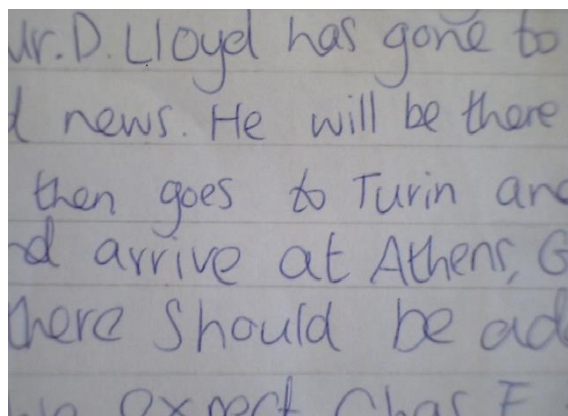 Mr. D. Lloyd has gone to
news. He will be there
then goes to Turin and
arrive at Athens, G
there Should be ad
expect Chas. E